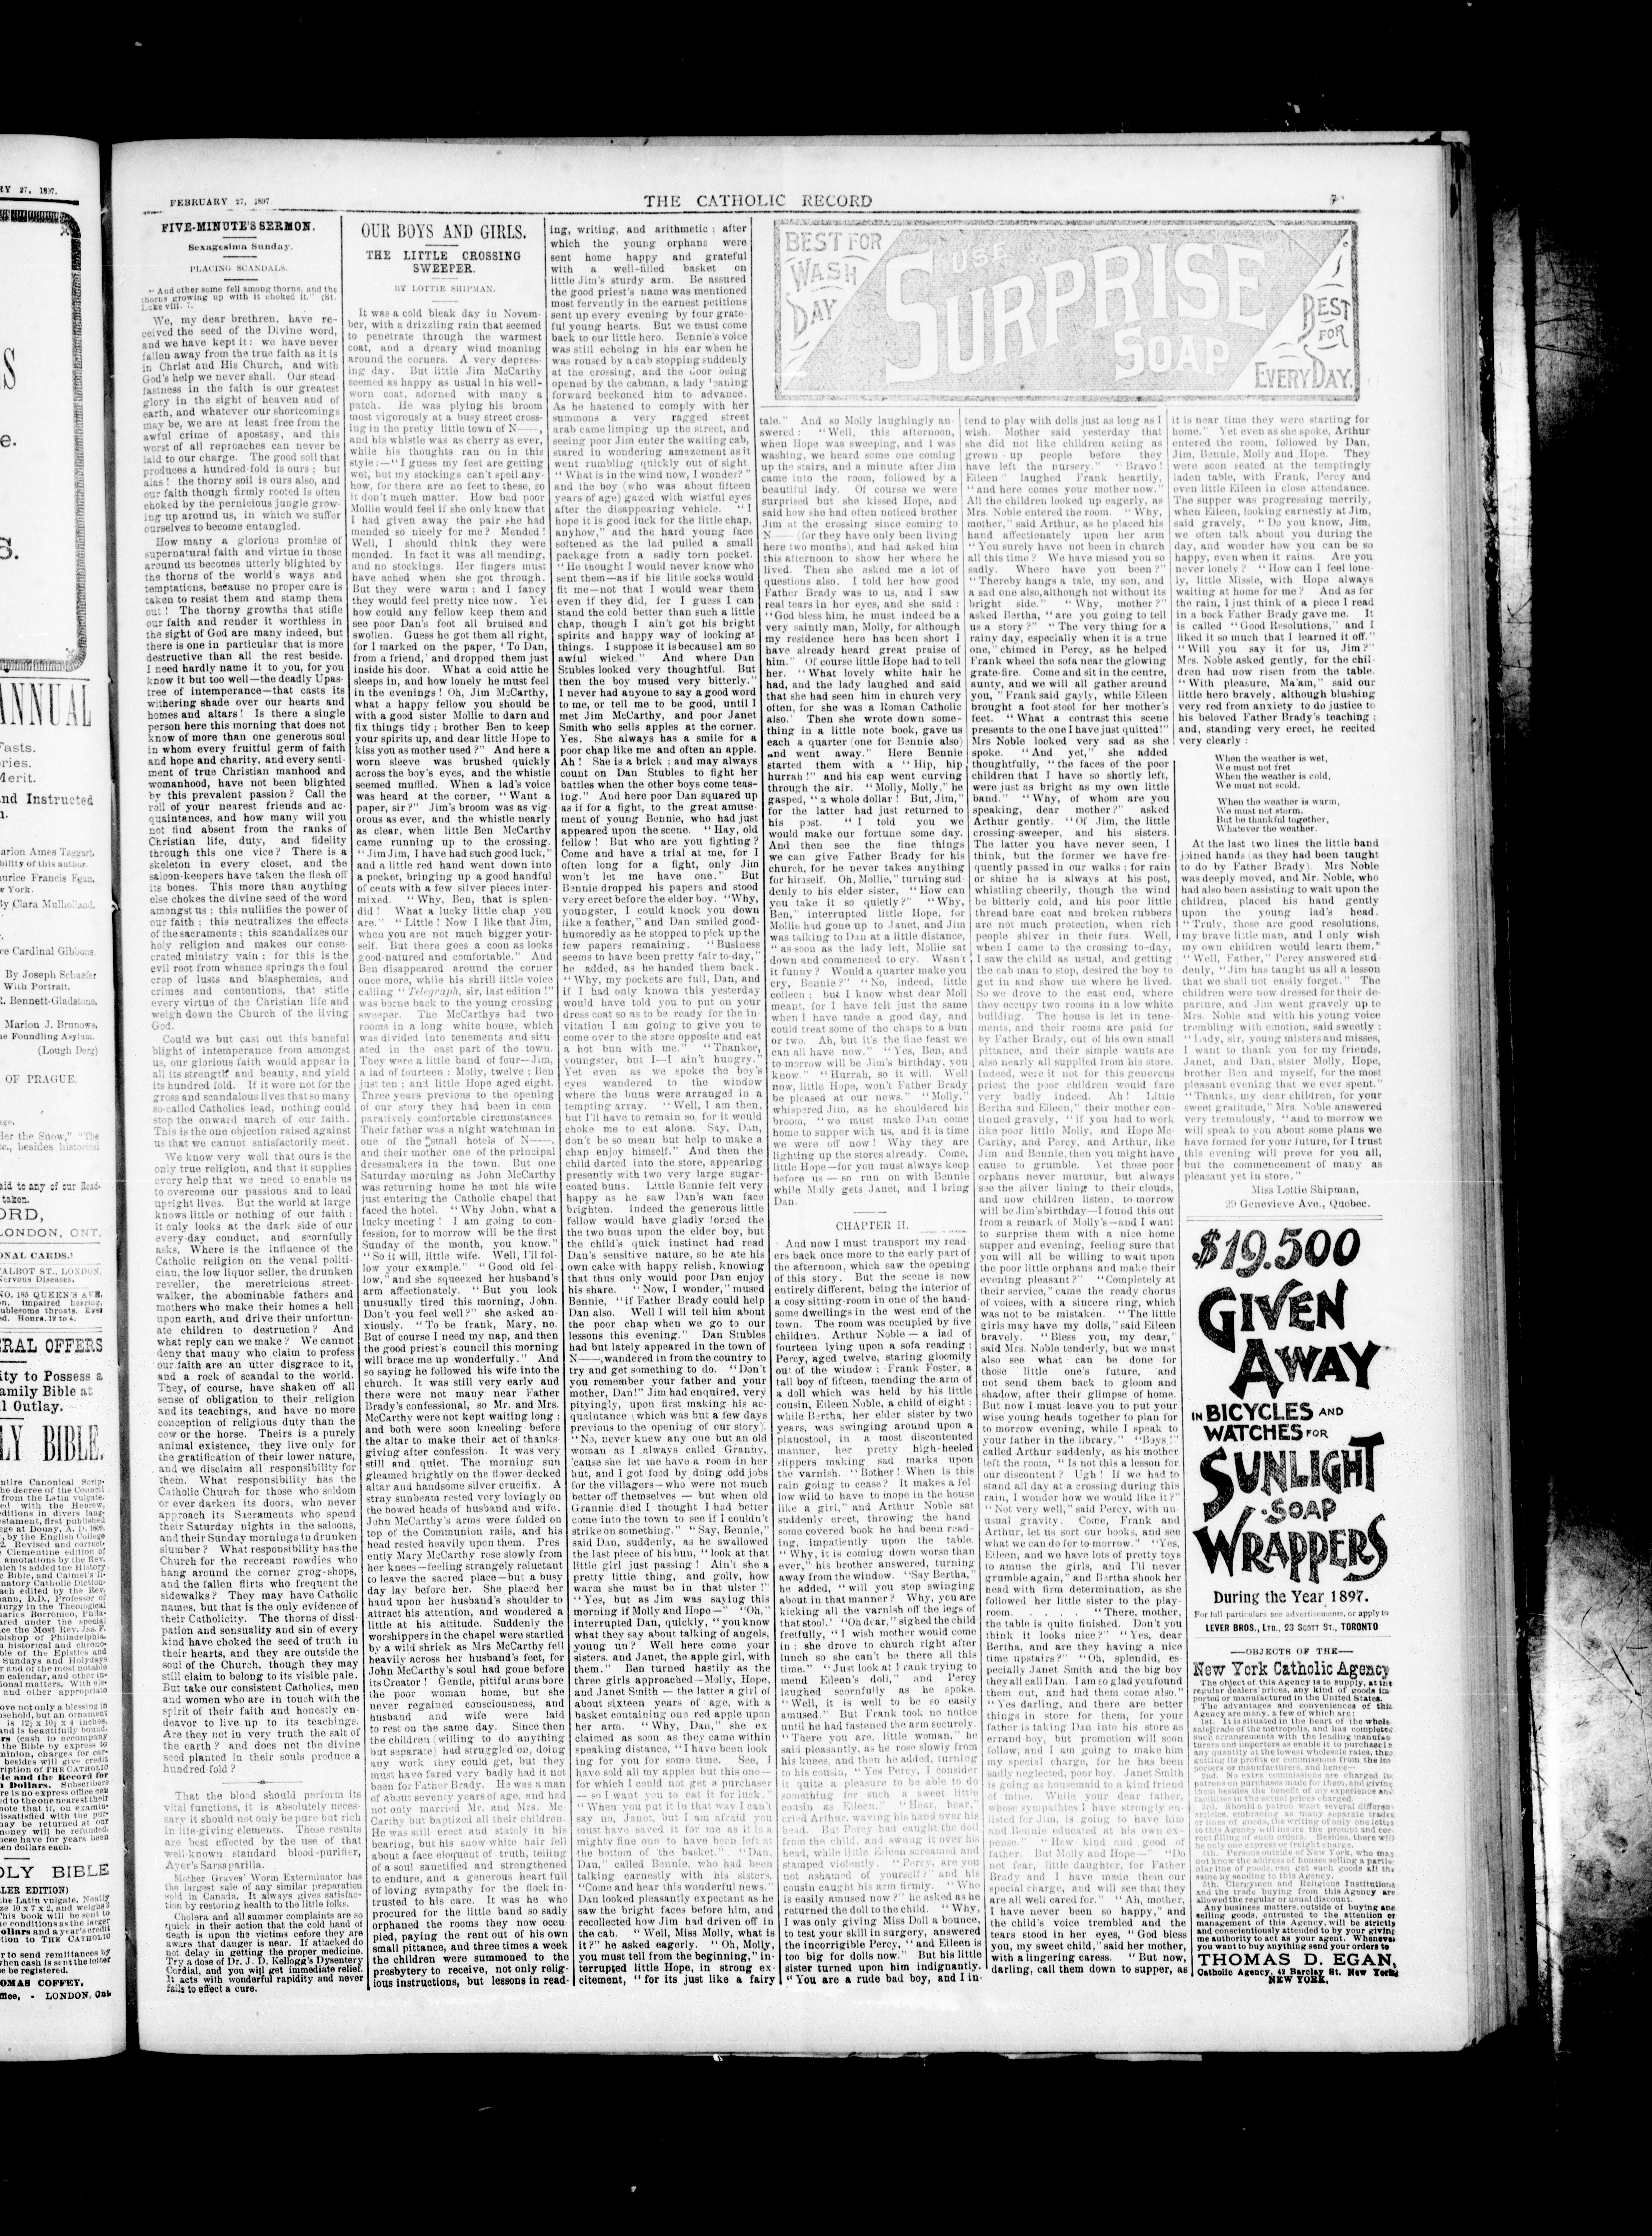 FEBRUARY 27, 1897.
THE CATHOLIC RECORD
7
FIVE-MINUTE'S SERMON.
Sexagesima Sunday.
PLACING SCANDALS.
"And other some fell among thorns, and the
thorns growing up with it choked it." (St.
Luke viii. 7.
We, my dear brethren, have re-
ceived the seed of the Divine word,
and we have kept it: we have never
fallen away from the true faith as it is
in Christ and His Church, and with
God's help we never shall. Our stead
fastness in the faith is our greatest
glory in the sight of heaven and of
earth, and whatever our shortcomings
may be, we are at least free from the
awful crime of apostasy, and this
worst of all reproaches can never be
laid to our charge. The good soil that
produces a hundred-fold is ours; but
alas! the thorny soil is ours also, and
our faith though firmly rooted is often
choked by the pernicious jungle grow-
ing up around us, in which we suffer
ourselves to become entangled.
How many a glorious promise of
supernatural faith and virtue in those
around us becomes utterly blighted by
the thorns of the world's ways and
temptations, because no proper care is
taken to resist them and stamp them
out! The thorny growths that stifle
our faith and render it worthless in
the sight of God are many indeed, but
there is one in particular that is more
destructive than all the rest beside.
I need hardly name it to you, for you
know it but too well—the deadly Upas-
tree of intemperance—that casts its
withering shade over our hearts and
homes and altars! Is there a single
person here this morning that does not
know of more than one generous soul
in whom every fruitful germ of faith
and hope and charity, and every senti-
ment of true Christian manhood and
womanhood, have not been blighted
by this prevalent passion? Call the
roll of your nearest friends and ac-
quaintances, and how many will you
not find absent from the ranks of
Christian life, duty, and fidelity
through this one vice? There is a
skeleton in every closet, and the
saloon-keepers have taken the flesh off
its bones. This more than anything
else chokes the divine seed of the word
amongst us; this nullifies the power of
our faith; this neutralizes the effects
of the sacraments; this scandalizes our
holy religion and makes our conse-
crated ministry vain; for this is the
evil root from whence springs the foul
crop of lusts and blasphemies, and
crimes and contentions, that stifle
every virtue of the Christian life and
weigh down the Church of the living
God.
Could we but cast out this baneful
blight of intemperance from amongst
us, our glorious faith would appear in
all its strength and beauty, and yield
its hundred fold. If it were not for the
gross and scandalous lives that so many
so-called Catholics lead, nothing could
stop the onward march of our faith.
This is the one objection raised against
us that we cannot satisfactorily meet.
We know very well that ours is the
only true religion, and that it supplies
every help that we need to enable us
to overcome our passions and to lead
upright lives. But the world at large
knows little or nothing of our faith:
it only looks at the dark side of our
every-day conduct, and scornfully
asks, Where is the influence of the
Catholic religion on the venal politi-
cian, the low liquor seller, the drunken
reveller, the meretricious street-
walker, the abominable fathers and
mothers who make their homes a hell
upon earth, and drive their unfortun-
ate children to destruction? And
what reply can we make? We cannot
deny that many who claim to profess
our faith are an utter disgrace to it,
and a rock of scandal to the world.
They, of course, have shaken off all
sense of obligation to their religion
and its teachings, and have no more
conception of religious duty than the
cow or the horse. Theirs is a purely
animal existence, they live only for
the gratification of their lower nature,
and we disclaim all responsibility for
them. What responsibility has the
Catholic Church for those who seldom
or ever darken its doors, who never
approach its Sacraments who spend
their Saturday nights in the saloons,
and their Sunday mornings in drunken
slumber? What responsibility has the
Church for the recreant rowdies who
hang around the corner grog-shops,
and the fallen flirts who frequent the
sidewalks? They may have Catholic
names, but that is the only evidence of
their Catholicity. The thorns of dissi-
pation and sensuality and sin of every
kind have choked the seed of truth in
their hearts, and they are outside the
soul of the Church, though they may
still claim to belong to its visible pale.
But take our consistent Catholics, men
and women who are in touch with the
spirit of their faith and honestly en-
deavor to live up to its teachings.
Are they not in very truth the salt of
the earth? and does not the divine
seed planted in their souls produce a
hundred-fold?
That the blood should perform its
vital functions, it is absolutely neces-
sary it should not only be pure but rich
in life-giving elements. These results
are best effected by the use of that
well-known standard blood-purifier,
Ayer's Sarsaparilla.
Mother Graves' Worm Exterminator has
the largest sale of any similar preparation
sold in Canada. It always gives satisfac-
tion by restoring health to the little folks.
Cholera and all summer complaints are so
quick in their action that the cold hand of
death is upon the victims before they are
aware that danger is near. If attacked do
not delay in getting the proper medicine.
Try a dose of Dr. J. D. Kellogg's Dysentery
Cordial, and you will get immediate relief.
It acts with wonderful rapidity and never
fails to effect a cure.
OUR BOYS AND GIRLS.
THE LITTLE CROSSING
SWEEPER.
BY LOTTIE SHIPMAN.
It was a cold bleak day in Novem-
ber, with a drizzling rain that seemed
to penetrate through the warmest
coat, and a dreary wind moaning
around the corners. A very depress-
ing day. But little Jim McCarthy
seemed as happy as usual in his well-
worn coat, adorned with many a
patch. He was plying his broom
most vigorously at a busy street cross-
ing in the pretty little town of N——,
and his whistle was as cherry as ever,
while his thoughts ran on in this
style:—"I guess my feet are getting
wet, but my stockings can't spoil any-
how, for there are no feet to these, so
it don't much matter. How bad poor
Mollie would feel if she only knew that
I had given away the pair she had
mended so nicely for me? Mended!
Well, I should think they were
mended. In fact it was all mending,
and no stockings. Her fingers must
have ached when she got through.
But they were warm; and I fancy
they would feel pretty nice now. Yet
how could any fellow keep them and
see poor Dan's foot all bruised and
swollen. Guess he got them all right,
for I marked on the paper, 'To Dan,
from a friend,' and dropped them just
inside his door. What a cold attic he
sleeps in, and how lonely he must feel
in the evenings! Oh, Jim McCarthy,
what a happy fellow you should be
with a good sister Mollie to darn and
fix things tidy; brother Ben to keep
your spirits up, and dear little Hope to
kiss you as mother used?" And here a
worn sleeve was brushed quickly
across the boy's eyes, and the whistle
seemed muffled. When a lad's voice
was heard at the corner, "Want a
paper, sir?" Jim's broom was as vig-
orous as ever, and the whistle nearly
as clear, when little Ben McCarthy
came running up to the crossing.
"Jim Jim, I have had such good luck,"
and a little red hand went down into
a pocket, bringing up a good handful
of cents with a few silver pieces inter-
mixed. "Why, Ben, that is splen-
did! What a lucky little chap you
are." "Little! Now I like that Jim,
when you are not much bigger your-
self. But there goes a coon as looks
good-natured and comfortable." And
Ben disappeared around the corner
once more, while his shrill little voice
calling "Telegraph, sir, last edition!"
was borne back to the young crossing
sweeper. The McCarthys had two
rooms in a long white house, which
was divided into tenements and situ
ated in the east part of the town.
They were a little band of four—Jim,
a lad of fourteen: Molly, twelve; Ben
just ten; and little Hope aged eight.
Three years previous to the opening
of our story they had been in com
paratively comfortable circumstances.
Their father was a night watchman in
one of the small hotels of N——,
and their mother one of the principal
dressmakers in the town. But one
Saturday morning as John McCarthy
was returning home he met his wife
just entering the Catholic chapel that
faced the hotel. "Why John, what a
lucky meeting! I am going to con-
fession, for to morrow will be the first
Sunday of the month, you know."
"So it will, little wife. Well, I'll fol-
low your example." "Good old fel-
low," and she squeezed her husband's
arm affectionately. "But you look
unusually tired this morning, John.
Don't you feel well?" she asked an-
xiously. "To be frank, Mary, no.
But of course I need my nap, and then
the good priest's council this morning
will brace me up wonderfully." And
so saying he followed his wife into the
church. It was still very early and
there were not many near Father
Brady's confessional, so Mr. and Mrs.
McCarthy were not kept waiting long;
and both were soon kneeling before
the altar to make their act of thanks-
giving after confession. It was very
still and quiet. The morning sun
gleamed brightly on the flower decked
altar and handsome silver crucifix. A
stray sunbeam rested very lovingly on
the bowed heads of husband and wife.
John McCarthy's arms were folded on
top of the Communion rails, and his
head rested heavily upon them. Pres
ently Mary McCarthy rose slowly from
her knees—feeling strangely reluctant
to leave the sacred place—but a busy
day lay before her. She placed her
hand upon her husband's shoulder to
attract his attention, and wondered a
little at his attitude. Suddenly the
worshippers in the chapel were startled
by a wild shriek as Mrs McCarthy fell
heavily across her husband's feet, for
John McCarthy's soul had gone before
its Creator! Gentle, pitiful arms bore
the poor woman home, but she
never regained consciousness, and
husband and wife were laid
to rest on the same day. Since then
the children (willing to do anything
but separate) had struggled on, doing
any work they could get, but they
must have fared very badly had it not
been for Father Brady. He was a man
of about seventy years of age, and had
not only married Mr. and Mrs. Mc-
Carthy but baptized all their children.
He was still erect and stately in his
bearing, but his snow-white hair fell
about a face eloquent of truth, telling
of a soul sanctified and strengthened
to endure, and a generous heart full
of loving sympathy for the flock in-
trusted to his care. It was he who
procured for the little band so sadly
orphaned the rooms they now occu
pied, paying the rent out of his own
small pittance, and three times a week
the children were summoned to the
presbytery to receive, not only relig-
ious instructions, but lessons in read-
ing, writing, and arithmetic; after
which the young orphans were
sent home happy and grateful
with a well-filled basket on
little Jim's sturdy arm. Be assured
the good priest's name was mentioned
most fervently in the earnest petitions
sent up every evening by four grate-
ful young hearts. But we must come
back to our little hero. Bennie's voice
was still echoing in his ear when he
was roused by a cab stopping suddenly
at the crossing, and the door being
opened by the cabman, a lady leaning
forward beckoned him to advance.
As he hastened to comply with her
summons a very ragged street
arab came limping up the street, and
seeing poor Jim enter the waiting cab,
stared in wondering amazement as it
went rumbling quickly out of sight.
"What is in the wind now, I wonder?"
and the boy (who was about fifteen
years of age) gazed with wistful eyes
after the disappearing vehicle. "I
hope it is good luck for the little chap,
anyhow," and the hard young face
softened as the lad pulled a small
package from a sadly torn pocket.
"He thought I would never know who
sent them—as if his little socks would
fit me—not that I would wear them
even if they did, for I guess I can
stand the cold better than such a little
chap, though I ain't got his bright
spirits and happy way of looking at
things. I suppose it is because I am so
awful wicked." And where Dan
Stubles looked very thoughtful. But
then the boy mused very bitterly."
I never had anyone to say a good word
to me, or tell me to be good, until I
met Jim McCarthy, and poor Janet
Smith who sells apples at the corner.
Yes. She always has a smile for a
poor chap like me and often an apple.
Ah! She is a brick; and may always
count on Dan Stubles to fight her
battles when the other boys come teas-
ing." And here poor Dan squared up
as if for a fight, to the great amuse-
ment of young Bennie, who had just
appeared upon the scene. "Hay, old
fellow! But who are you fighting?
Come and have a trial at me, for I
often long for a fight, only Jim
won't let me have one." But
Bennie dropped his papers and stood
very erect before the elder boy. "Why,
youngster, I could knock you down
like a feather," and Dan smiled good-
humoredly as he stopped to pick up the
few papers remaining. "Business
seems to have been pretty fair to-day,"
he added, as he handed them back.
"Why, my pockets are full, Dan, and
if I had only known this yesterday
would have told you to put on your
dress coat so as to be ready for the in-
vitation I am going to give you to
come over to the store opposite and eat
a hot bun with me." "Thankee,
youngster, but I—I ain't hungry."
Yet even as he spoke the boy's
eyes wandered to the window
where the buns were arranged in a
tempting array. "Well, I am then,
but I'll have to remain so, for it would
choke me to eat alone. Say, Dan,
don't be so mean but help to make a
chap enjoy himself." And then the
child darted into the store, appearing
presently with two very large sugar-
coated buns. Little Bennie felt very
happy as he saw Dan's wan face
brighten. Indeed the generous little
fellow would have gladly forced the
the two buns upon the elder boy, but
the child's quick instinct had read
Dan's sensitive nature, so he ate his
own cake with happy relish, knowing
that thus only would poor Dan enjoy
his share. "Now, I wonder," mused
Bennie, "if Father Brady could help
Dan also. Well I will tell him about
the poor chap when we go to our
lessons this evening." Dan Stubles
had but lately appeared in the town of
N——, wandered in from the country to
try and get something to do. "Don't
you remember your father and your
mother, Dan!" Jim had enquired, very
pityingly, upon first making his ac-
quaintance (which was but a few days
previous to the opening of our story).
"No, never knew any one but an old
woman as I always called Granny,
'cause she let me have a room in her
hut, and I got food by doing odd jobs
for the villagers—who were not much
better off themselves — but when old
Grannie died I thought I had better
come into the town to see if I couldn't
strike on something." "Say, Bennie,"
said Dan, suddenly, as he swallowed
the last piece of his bun, "look at that
little girl just passing! Ain't she a
pretty little thing, and golly, how
warm she must be in that ulster!"
"Yes, but as Jim was saying this
morning if Molly and Hope—" "Oh,"
interrupted Dan, quickly, "you know
what they say about talking of angels,
young un? Well here come your
sisters. and Janet, the apple girl, with
them." Ben turned hastily as the
three girls approached—Molly, Hope,
and Janet Smith — the latter a girl of
about sixteen years of age, with a
basket containing one red apple upon
her arm. "Why, Dan," she ex
claimed as soon as they came within
speaking distance, "I have been look
ing also for you for some time. See, I
have sold all my apples but this one—
for which I could not get a purchaser
— so I want you to eat it for luck."
"When you put it in that way I can't
say no, Janet, but I am afraid you
must have saved it for me as it is a
mighty fine one to have been left at
the bottom of the basket." "Dan,
Dan," called Bennie, who had been
talking earnestly with his sisters,
"Come and hear this wonderful news."
Dan looked pleasantly expectant as he
saw the bright faces before him, and
recollected how Jim had driven off in
the cab. "Well, Miss Molly, what is
it?" he asked eagerly. "Oh, Molly,
you must tell from the beginning," in-
terrupted little Hope, in strong ex-
citement, "for its just like a fairy
BEST FOR
WASH
DAY
USE
SURPRISE
SOAP
BEST
FOR
EVERY DAY.
tale." And so Molly laughingly an-
swered: "Well, this afternoon,
when Hope was sweeping, and I was
washing, we heard some one coming
up the stairs, and a minute after Jim
came into the room, followed by a
beautiful lady. Of course we were
surprised but she kissed Hope, and
said how she had often noticed brother
Jim at the crossing since coming to
N—— (for they have only been living
here two months), and had asked him
this afternoon to show her where he
lived. Then she asked me a lot of
questions also. I told her how good
Father Brady was to us, and I saw
real tears in her eyes, and she said:
"God bless him, he must indeed be a
very saintly man, Molly, for although
my residence here has been short I
have already heard great praise of
him." Of course little Hope had to tell
her. "What lovely white hair he
had, and the lady laughed and said
that she had seen him in church very
often, for she was a Roman Catholic
also.' Then she wrote down some-
thing in a little note book, gave us
each a quarter (one for Bennie also)
and went away." Here Bennie
started them with a "Hip, hip
hurrah!" and his cap went curving
through the air. "Molly, Molly," he
gasped, "a whole dollar! But, Jim,"
for the latter had just returned to
his post. "I told you we
would make our fortune some day.
And then see the fine things
we can give Father Brady for his
church, for he never takes anything
for himself. Oh, Mollie," turning sud-
denly to his elder sister, "How can
you take it so quietly?" "Why,
Ben," interrupted little Hope, for
Mollie had gone up to Janet, and Jim
was talking to Dan at a little distance,
"as soon as the lady left, Mollie sat
down and commenced to cry. Wasn't
it funny? Would a quarter make you
cry, Bennie?" "No, indeed, little
colleen; but I know what dear Moll
meant, for I have felt just the same
when I have made a good day, and
could treat some of the chaps to a bun
or two. Ah, but it's the fine feast we
can all have now." "Yes, Ben, and
to morrow will be Jim's birthday, you
know." "Hurrah, so it will. Well
now, little Hope, won't Father Brady
be pleased at our news." "Molly,"
whispered Jim, as he shouldered his
broom, "we must make Dan come
home to supper with us, and it is time
we were off now! Why they are
lighting up the stores already. Come,
little Hope—for you must always keep
before us — so run on with Bennie
while Molly gets Janet, and I bring
Dan.
CHAPTER II.
And now I must transport my read-
ers back once more to the early part of
the afternoon, which saw the opening
of this story. But the scene is now
entirely different, being the interior of
a cosy sitting-room in one of the hand-
some dwellings in the west end of the
town. The room was occupied by five
children. Arthur Noble — a lad of
fourteen lying upon a sofa reading;
Percy, aged twelve, staring gloomily
out of the window; Frank Foster, a
tall boy of fifteen, mending the arm of
a doll which was held by his little
cousin, Eileen Noble, a child of eight;
while Bertha, her elder sister by two
years, was swinging around upon a
pianostool, in a most discontented
manner, her pretty high-heeled
slippers making sad marks upon
the varnish. "Bother! When is this
rain going to cease? It makes a fel
low wild to have to mope in the house
like a girl," and Arthur Noble sat
suddenly erect, throwing the hand
some covered book he had been read-
ing, impatiently upon the table.
"Why, it is coming down worse than
ever," his brother answered, turning
away from the window. "Say Bertha,"
he added, "will you stop swinging
about in that manner? Why, you are
kicking all the varnish off the legs of
that stool." "Oh dear," sighed the child
fretfully, "I wish mother would come
in; she drove to church right after
lunch so she can't be there all this
time." "Just look at Frank trying to
mend Eileen's doll," and Percy
laughed scornfully as he spoke.
"Well, it is well to be so easily
amused." But Frank took no notice
until he had fastened the arm securely.
"There you are, little woman," he
said pleasantly, as he rose slowly from
his knees, and then he added, turning
to his cousin, "Yes Percy, I consider
it quite a pleasure to be able to do
something for such a sweet little
cousin as Eileen." "Hear, hear,"
cried Arthur, waving his hand over his
head. But Percy had caught the doll
from the child, and swung it over his
head, while little Eileen screamed and
stamped violently. "Percy, are you
not ashamed of yourself?" and his
cousin caught his arm firmly. "Who
is easily amused now?" he asked as he
returned the doll to the child. "Why,
I was only giving Miss Doll a bounce,
to test your skill in surgery, answered
the incorrigible Percy, "and Eileen is
too big for dolls now." But his little
sister turned upon him indignantly.
"You are a rude bad boy, and I in-
tend to play with dolls just as long as I
wish. Mother said yesterday that
she did not like children acting as
grown-up people before they
have left the nursery." "Bravo!
Eileen" laughed Frank heartily,
"and here comes your mother now."
All the children looked up eagerly, as
Mrs. Noble entered the room. "Why,
mother," said Arthur, as he placed his
hand affectionately upon her arm
"You surely have not been in church
all this time? We have missed you so
sadly. Where have you been?"
"Thereby hangs a tale, my son, and
a sad one also, although not without its
bright side." "Why, mother?"
asked Bertha, "are you going to tell
us a story?" "The very thing for a
rainy day, especially when it is a true
one," chimed in Percy, as he helped
Frank wheel the sofa near the glowing
grate-fire. Come and sit in the centre,
aunty, and we will all gather around
you, "Frank said gayly, while Eileen
brought a foot stool for her mother's
feet. "What a contrast this scene
presents to the one I have just quitted!"
Mrs Noble looked very sad as she
spoke. "And yet," she added
thoughtfully, "the faces of the poor
children that I have so shortly left,
were just as bright as my own little
band." "Why, of whom are you
speaking, dear mother?" asked
Arthur gently. "Of Jim, the little
crossing-sweeper, and his sisters.
The latter you have never seen, I
think, but the former we have fre-
quently passed in our walks; for rain
or shine he is always at his post,
whistling cheerily, though the wind
be bitterly cold, and his poor little
thread bare coat and broken rubbers
are not much protection, when rich
people shiver in their furs. Well,
when I came to the crossing to-day,
I saw the child as usual, and getting
the cab man to stop, desired the boy to
get in and show me where he lived.
So we drove to the east end, where
they occupy two rooms in a low white
building. The house is let in tene-
ments, and their rooms are paid for
by Father Brady, out of his own small
pittance, and their simple wants are
also nearly all supplied from his store.
Indeed, were it not for this generous
priest the poor children would fare
very badly indeed. Ah! Little
Bertha and Eileen," their mother con-
tinued gravely, "if you had to work
like poor little Molly, and Hope Mc-
Carthy, and Percy, and Arthur, like
Jim and Bennie, then you might have
cause to grumble. Yet those poor
orphans never murmur, but always
see the silver lining to their clouds,
and now children listen, to-morrow
will be Jim's birthday—I found this out
from a remark of Molly's—and I want
to surprise them with a nice home
supper and evening, feeling sure that
you will all be willing to wait upon
the poor little orphans and make their
evening pleasant?" "Completely at
their service," came the ready chorus
of voices, with a sincere ring, which
was not to be mistaken. "The little
girls may have my dolls," said Eileen
bravely. "Bless you, my dear,"
said Mrs. Noble tenderly, but we must
also see what can be done for
those little one's future, and
not send them back to gloom and
shadow, after their glimpse of home.
But now I must leave you to put your
wise young heads together to plan for
to morrow evening, while I speak to
your father in the library." "Boys!"
called Arthur suddenly, as his mother
left the room, "Is not this a lesson for
our discontent? Ugh! If we had to
stand all day at a crossing during this
rain, I wonder how we would like it?"
"Not very well," said Percy, with un
usual gravity. Come, Frank and
Arthur, let us sort our books, and see
what we can do for to-morrow." "Yes,
Eileen, and we have lots of pretty toys
to amuse the girls, and I'll never
grumble again," and Bertha shook her
head with firm determination, as she
followed her little sister to the play-
room. . . . "There, mother,
the table is quite finished. Don't you
think it looks nice?" "Yes, dear
Bertha, and are they having a nice
time upstairs?" "Oh, splendid, es-
pecially Janet Smith and the big boy
they all call Dan. I am so glad you found
them out, and had them come also."
"Yes darling, and there are better
things in store for them, for your
father is taking Dan into his store as
errand boy, but promotion will soon
follow, and I am going to make him
my special charge, for he has been
sadly neglected, poor boy. Janet Smith
is going as housemaid to a kind friend
of mine. While your dear father,
whose sympathies I have strongly en-
listed for Jim, is going to have him
and Bennie educated at his own ex-
pense." "How kind and good of
father. But Molly and Hope—" "Do
not fear, little daughter, for Father
Brady and I have made them our
special charge, and will see that they
are all well cared for." "Ah, mother,
I have never been so happy," and
the child's voice trembled and the
tears stood in her eyes, "God bless
you, my sweet child," said her mother,
with a lingering caress. "But now,
darling, call them down to supper, as
it is near time they were starting for
home." Yet even as she spoke, Arthur
entered the room, followed by Dan,
Jim, Bennie, Molly and Hope. They
were soon seated at the temptingly
laden table, with Frank, Percy and
even little Eileen in close attendance.
The supper was progressing merrily,
when Eileen, looking earnestly at Jim,
said gravely, "Do you know, Jim,
we often talk about you during the
day, and wonder how you can be so
happy, even when it rains. Are you
never lonely? "How can I feel lone-
ly, little Missie, with Hope always
waiting at home for me? And as for
the rain, I just think of a piece I read
in a book Father Brady gave me. It
is called "Good Resolutions," and I
liked it so much that I learned it off."
"Will you say it for us, Jim?"
Mrs. Noble asked gently, for the chil-
dren had now risen from the table.
"With pleasure, Ma'am," said our
little hero bravely, although blushing
very red from anxiety to do justice to
his beloved Father Brady's teaching;
and, standing very erect, he recited
very clearly:
When the weather is wet,
We must not fret
When the weather is cold,
We must not scold.
When the weather is warm,
We must not storm,
But be thankful together,
Whatever the weather.
At the last two lines the little band
joined hands (as they had been taught
to do by Father Brady). Mrs Noble
was deeply moved, and Mr. Noble, who
had also been assisting to wait upon the
children, placed his hand gently
upon the young lad's head.
"Truly, those are good resolutions,
my brave little man, and I only wish
my own children would learn them."
"Well, Father," Percy answered sud-
denly, "Jim has taught us all a lesson
that we shall not easily forget." The
children were now dressed for their de-
parture, and Jim went gravely up to
Mrs. Noble and with his young voice
trembling with emotion, said sweetly:
"Lady, sir, young misters and misses,
I want to thank you for my friends,
Janet, and Dan, sister Molly, Hope,
brother Ben and myself, for the most
pleasant evening that we ever spent."
"Thanks, my dear children, for your
sweet gratitude," Mrs. Noble answered
very tremulously, "and to-morrow we
will speak to you about some plans we
have formed for your future, for I trust
this evening will prove for you all,
but the commencement of many as
pleasant yet in store."
Miss Lottie Shipman,
29 Genevieve Ave., Quebec.
$19.500
GIVEN
AWAY
IN BICYCLES AND
WATCHES FOR
SUNLIGHT
SOAP
WRAPPERS
During the Year 1897.
For full particulars see advertisements, or apply to
LEVER BROS., LTD., 23 SCOTT ST., TORONTO
—OBJECTS OF THE—
New York Catholic Agency
The object of this Agency is to supply, at the
regular dealers' prices, any kind of goods im-
ported or manufactured in the United States.
The advantages and conveniences of this
Agency are many, a few of which are:
1st. It is situated in the heart of the whole-
sale trade of the metropolis, and has completed
such arrangements with the leading manufac-
turers and importers as enable it to purchase in
any quantity at the lowest wholesale rates, thus
getting its profits or commissions from the im-
porters or manufacturers, and hence—
2nd. No extra commissions are charged its
patrons on purchases made for them, and giving
them besides the benefit of my experience and
facilities in the actual prices charged.
3rd. Should a patron want several different
articles, embracing as many separate trades
or lines of goods, the writing of only one letter
to this Agency will insure the prompt and cor-
rect filling of such orders. Besides, there will
be only one express or freight charge.
4th. Persons outside of New York, who may
not know the address of houses selling a partic-
ular line of goods, can get such goods all the
same by sending to this Agency.
5th. Clergymen and Religious Institutions
and the trade buying from this Agency are
allowed the regular or usual discount.
Any business matters, outside of buying and
selling goods, entrusted to the attention or
management of this Agency, will be strictly
and conscientiously attended to by your giving
me authority to act as your agent. Whenever
you want to buy anything send your orders to
THOMAS D. EGAN,
Catholic Agency, 42 Barclay St. New York,
NEW YORK.